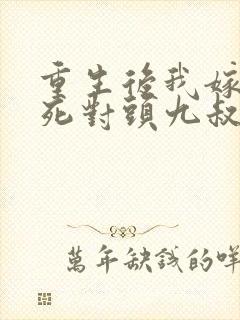 重生後我嫁
死對頭九叔
萬年缺錢的咩